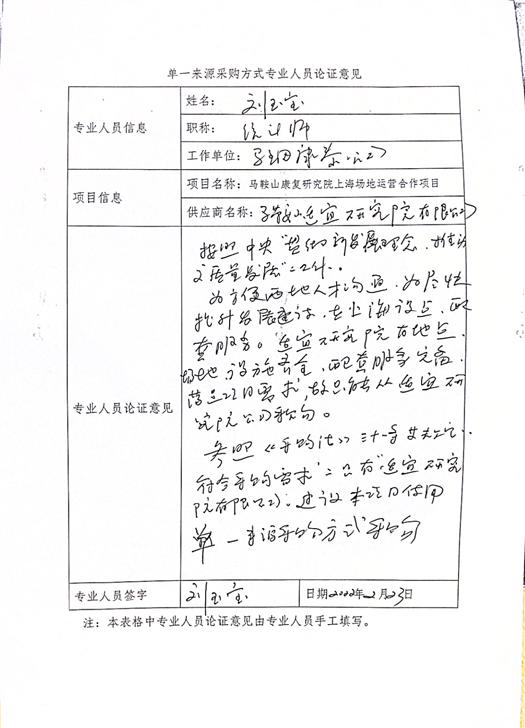 单一来源采购方式专业人员论证意见
专业人员信息
姓名：刘玉宝
职称：统计师
工作单位：
项目信息
项目名称：马鞍山康复研究院上海场地运营合作项目
供应商名称：研究院有限公司
专业人员论证意见
按照中央“新发展理念，推动
高质量发展”工作。
为方便两地人才沟通，为尽快
提升发展建设，在上海设点，配
套服务。适宜研究院有地点、
场地、设施齐全，配套服务完备，
需求，故只能从适宜研
究院公司采购。
参照《采购法》三十一条
符合采购需求只有“适宜研究
院有限公司，建议本项目使用
单一来源采购方式采购
专业人员签字
刘玉宝
日期2022年2月23日
注：本表格中专业人员论证意见由专业人员手工填写。